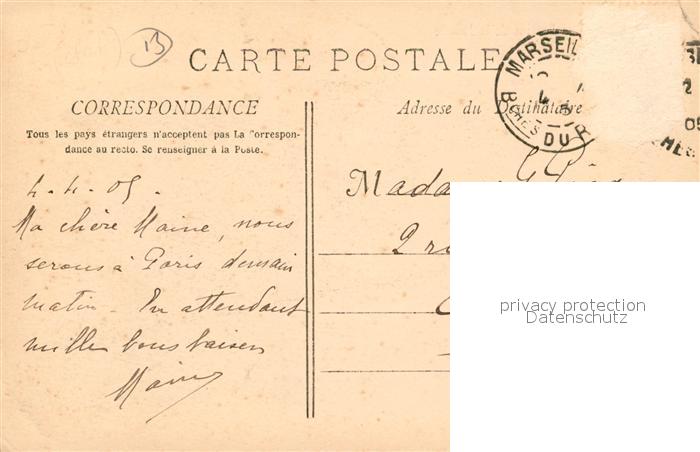 B
CARTE POSTALE
MARSEIL
BCHES DU R
05
CORRESPONDANCE
Tous les pays étrangers n'acceptent pas La Correspon-
dance au recto. Se renseigner à la Poste.
Adresse du Destinataire
4-4-05.
Ma chère Maine, nous
serons à Paris demain
matin. En attendant
mille bons baisers
Madam
2 ru
privacy protection
Datenschutz